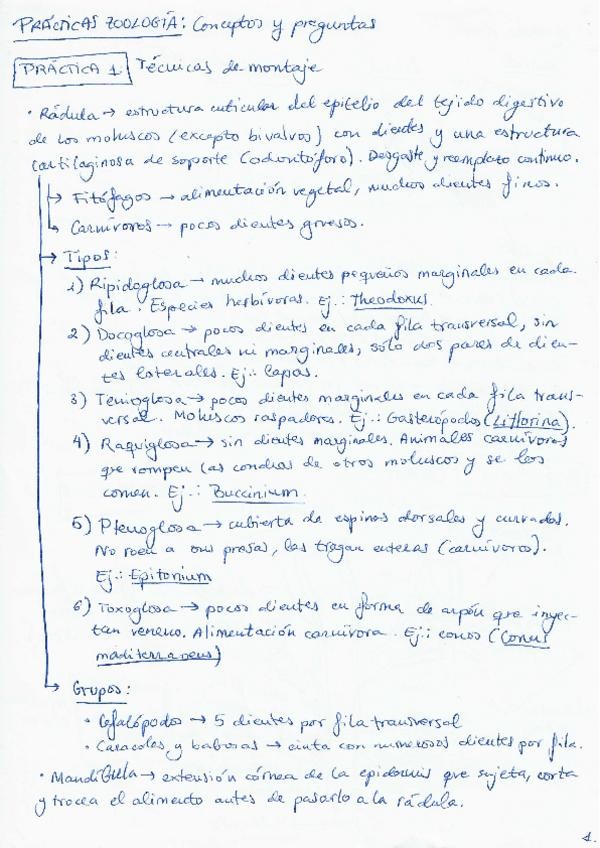 PRÁCTICAS ZOOLOGÍA: Conceptos y preguntas
PRÁCTICA 1: Técnicas de montaje
• Rádula → estructura cuticular del epitelio del tejido digestivo
de los moluscos (excepto bivalvos) con dientes y una estructura
cartilaginosa de soporte (odontóforo). Desgaste y reemplazo continuo.
→ Fitófagos → alimentación vegetal, muchos dientes finos.
→ Carnívoros → pocos dientes gruesos.
→ Tipos:
1) Ripidoglosa → muchos dientes pequeños marginales en cada
fila. Especies herbívoras. Ej.: Theodoxus.
2) Docoglosa → pocos dientes en cada fila transversal, sin
dientes centrales ni marginales, sólo dos pares de dien-
tes laterales. Ej.: lapas.
3) Tenioglosa → pocos dientes marginales en cada fila trans-
versal. Moluscos raspadores. Ej.: Gasterópodos (Littorina).
4) Raquiglosa → sin dientes marginales. Animales carnívoros
que rompen las conchas de otros moluscos y se los
comen. Ej.: Buccinium.
5) Ptenoglosa → cubierta de espinas dorsales y curvadas.
No roen a sus presas, las tragan enteras (carnívoros).
Ej.: Epitonium
6) Toxoglosa → pocos dientes en forma de arpón que inyec-
tan veneno. Alimentación carnívora. Ej.: conos (Conus
mediterraneus)
→ Grupos:
• Cefalópodos → 5 dientes por fila transversal
• Caracoles y babosas → cinta con numerosos dientes por fila.
• Mandíbula → extensión córnea de la epidermis que sujeta, corta
y trocea el alimento antes de pasarlo a la rádula.
1.